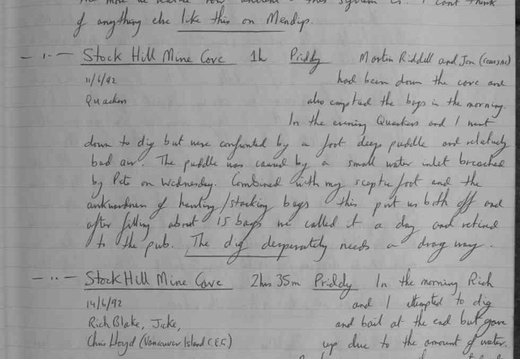 of anything else like this on Mendips.
- 1 - Stock Hill Mine Cave 1h Priddy Martin Riddell and Jon (caversac)
11/6/92 had been down the cave and
Quackers also emptied the bags in the morning.
In the evening Quackers and I went
down to dig but were confronted by a foot deep puddle and relatively
bad air. The puddle was caused by a small water inlet breached
by Pete on Wednesday. Combined with my septic foot and the
awkwardness of hauling/stacking bags this put us both off and
after filling about 15 bags we called it a day and retired
to the pub. The dig desperately needs a drag way.
- " - Stock Hill Mine Cave 2hrs 35m Priddy In the morning Rich
14/6/92 and I attempted to dig
Rich Blake, Jake, and bail at the end but gave
Chris Lloyd (Vancouver Island C.E.G) up due to the amount of water.